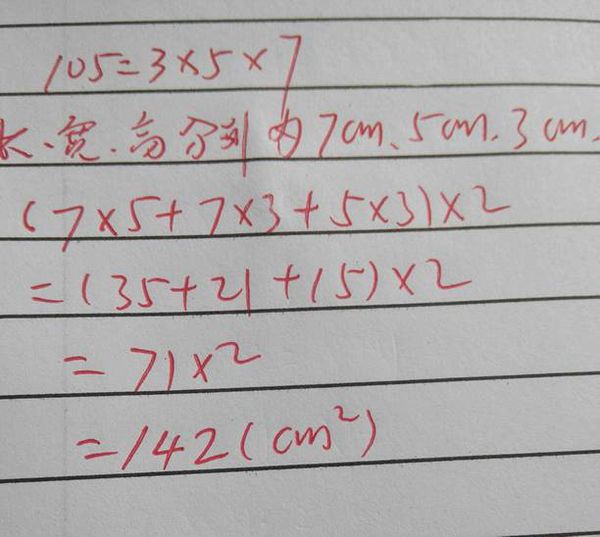 105=3×5×7
长、宽、高分别为7cm、5cm、3cm.
(7×5+7×3+5×3)×2
=(35+21+15)×2
=71×2
=142(cm²)